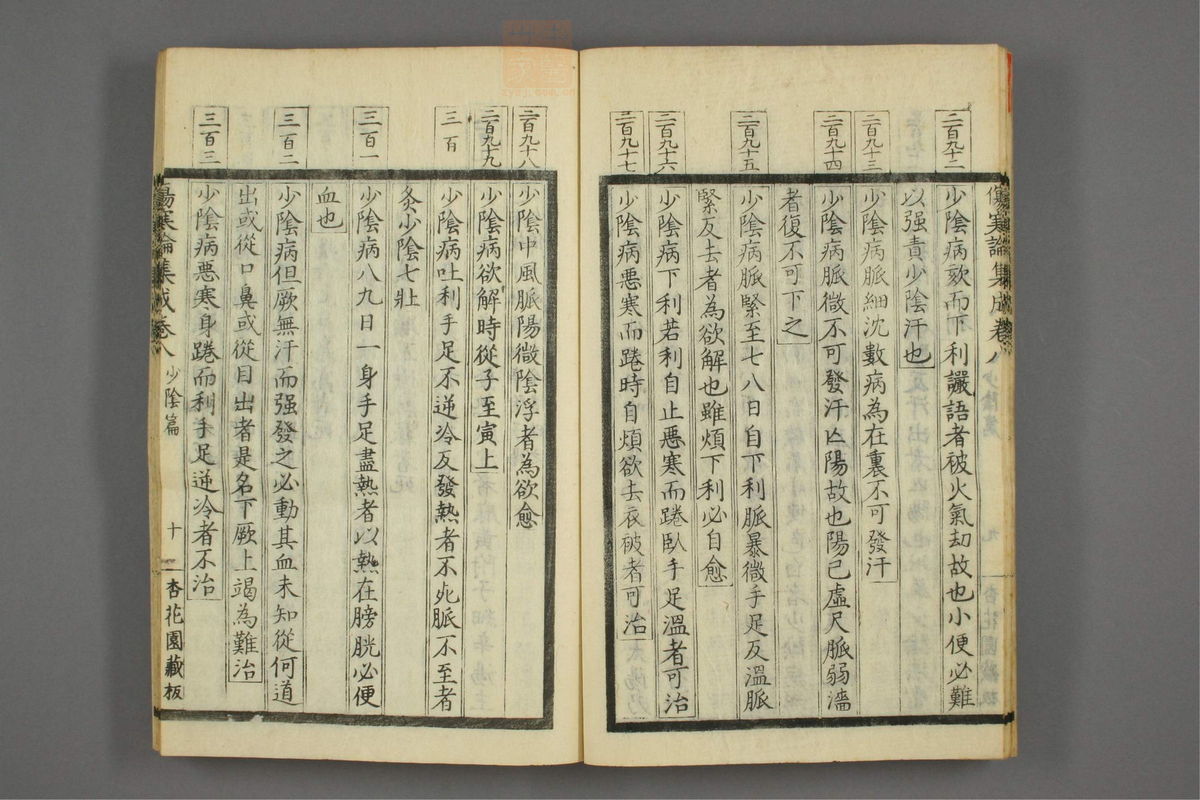 傷寒論集成卷八
二百九十二
少陰病欬而下利讝語者被火氣刧故也小便必難
以强責少陰汗也
二百九十三
少陰病脈細沈數病為在裏不可發汗
二百九十四
少陰病脈微不可發汗亡陽故也陽已虛尺脈弱濇
者復不可下之
二百九十五
少陰病脈緊至七八日自下利脈暴微手足反溫脈
緊反去者為欲解也雖煩下利必自愈
二百九十六
少陰病下利若利自止惡寒而踡臥手足溫者可治
二百九十七
少陰病惡寒而踡時自煩欲去衣被者可治
二百九十八
少陰中風脈陽微陰浮者為欲愈
二百九十九
少陰病欲解時從子至寅上
三百
少陰病吐利手足不逆冷反發熱者不死脈不至者
灸少陰七壯
三百一
少陰病八九日一身手足盡熱者以熱在膀胱必便
血也
三百二
少陰病但厥無汗而强發之必動其血未知從何道
出或從口鼻或從目出者是名下厥上竭為難治
三百三
少陰病惡寒身踡而利手足逆冷者不治
傷寒論集成卷八 少陰篇 十 杏花園藏板